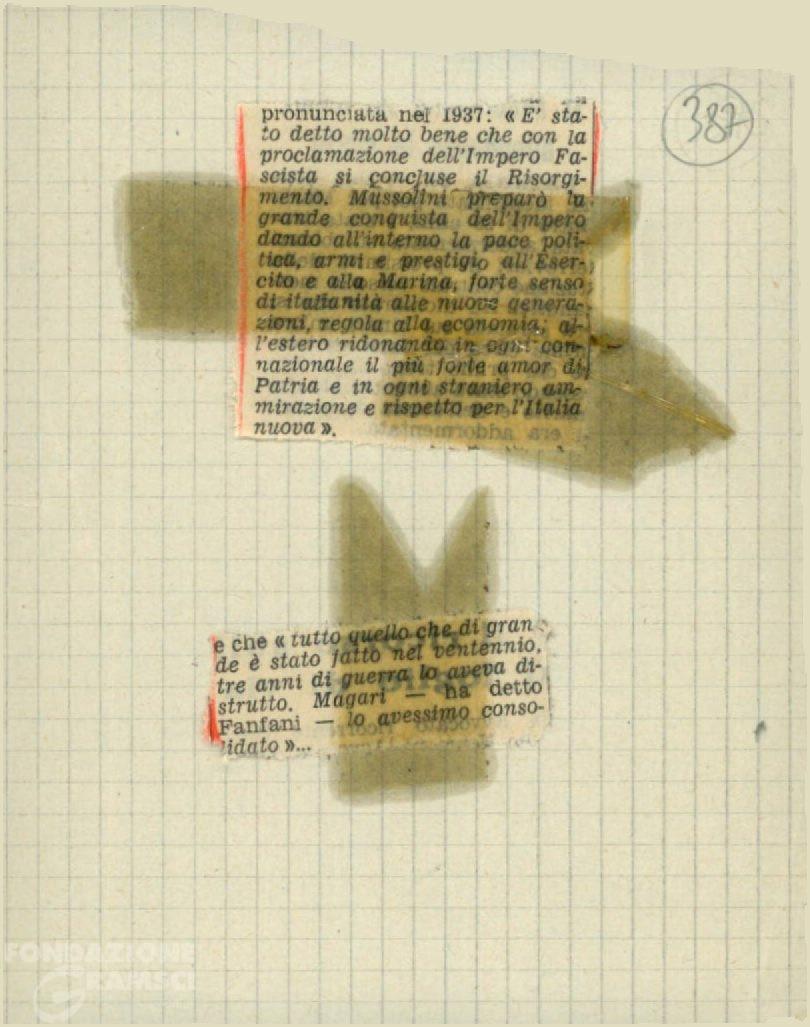 387
pronunciata nel 1937: « E' sta-
to detto molto bene che con la
proclamazione dell'Impero Fa-
scista si concluse il Risorgi-
mento. Mussolini preparò la
grande conquista dell'Impero
dando all'interno la pace poli-
tica, armi e prestigio all'Eser-
cito e alla Marina, forte senso
di italianità alle nuove genera-
zioni, regola alla economia; al-
l'estero ridonando in ogni con-
nazionale il più forte amor di
Patria e in ogni straniero am-
mirazione e rispetto per l'Italia
nuova ».
e che « tutto quello che di gran
de è stato fatto nel ventennio,
tre anni di guerra lo aveva di-
strutto. Magari — ha detto
Fanfani — lo avessimo conso-
lidato »...
FONDAZIONE
GRAMSCI